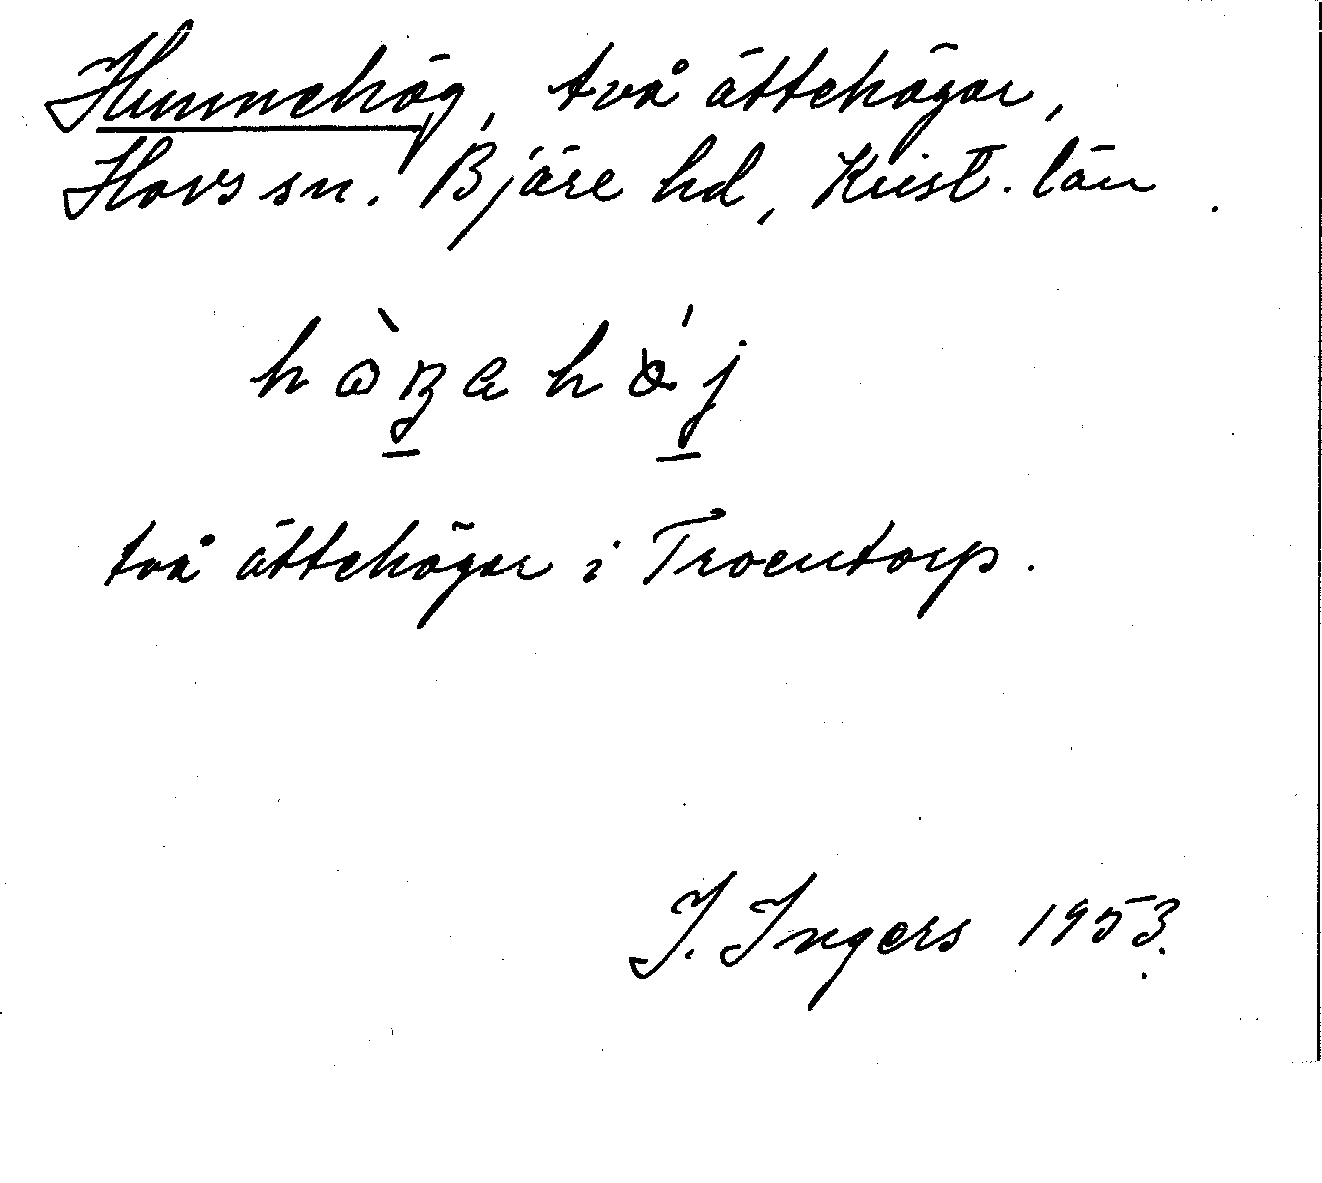 Hunnehög, två ättehögar,
Hovs sn. Bjäre hd, Krist. län.
två ättehögar i Troentorp.
I. Ingers 1953.